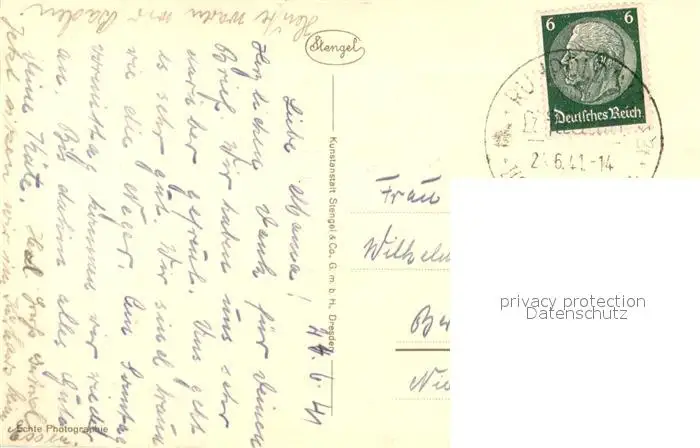 Heute waren wir Baden.
24.6.41
Liebe Mama!
Herzlichen Dank für Deinen
Brief. Wir haben uns sehr
darüber gefreut. Uns geht
es sehr gut. Wir sind braun
wie die Neger. Am Sonntag
vormittag kommen wir wieder
an. Bis dahin alles Gute
Deine Käte. Herzl. Gruß
Jetzt sitzen wir im
Stengel
Kunstanstalt Stengel & Co. G. m. b. H., Dresden
Echte Photographie
6 6
Deutsches Reich
6.41-14
Frau
Wilhelm
privacy protection
Datenschutz